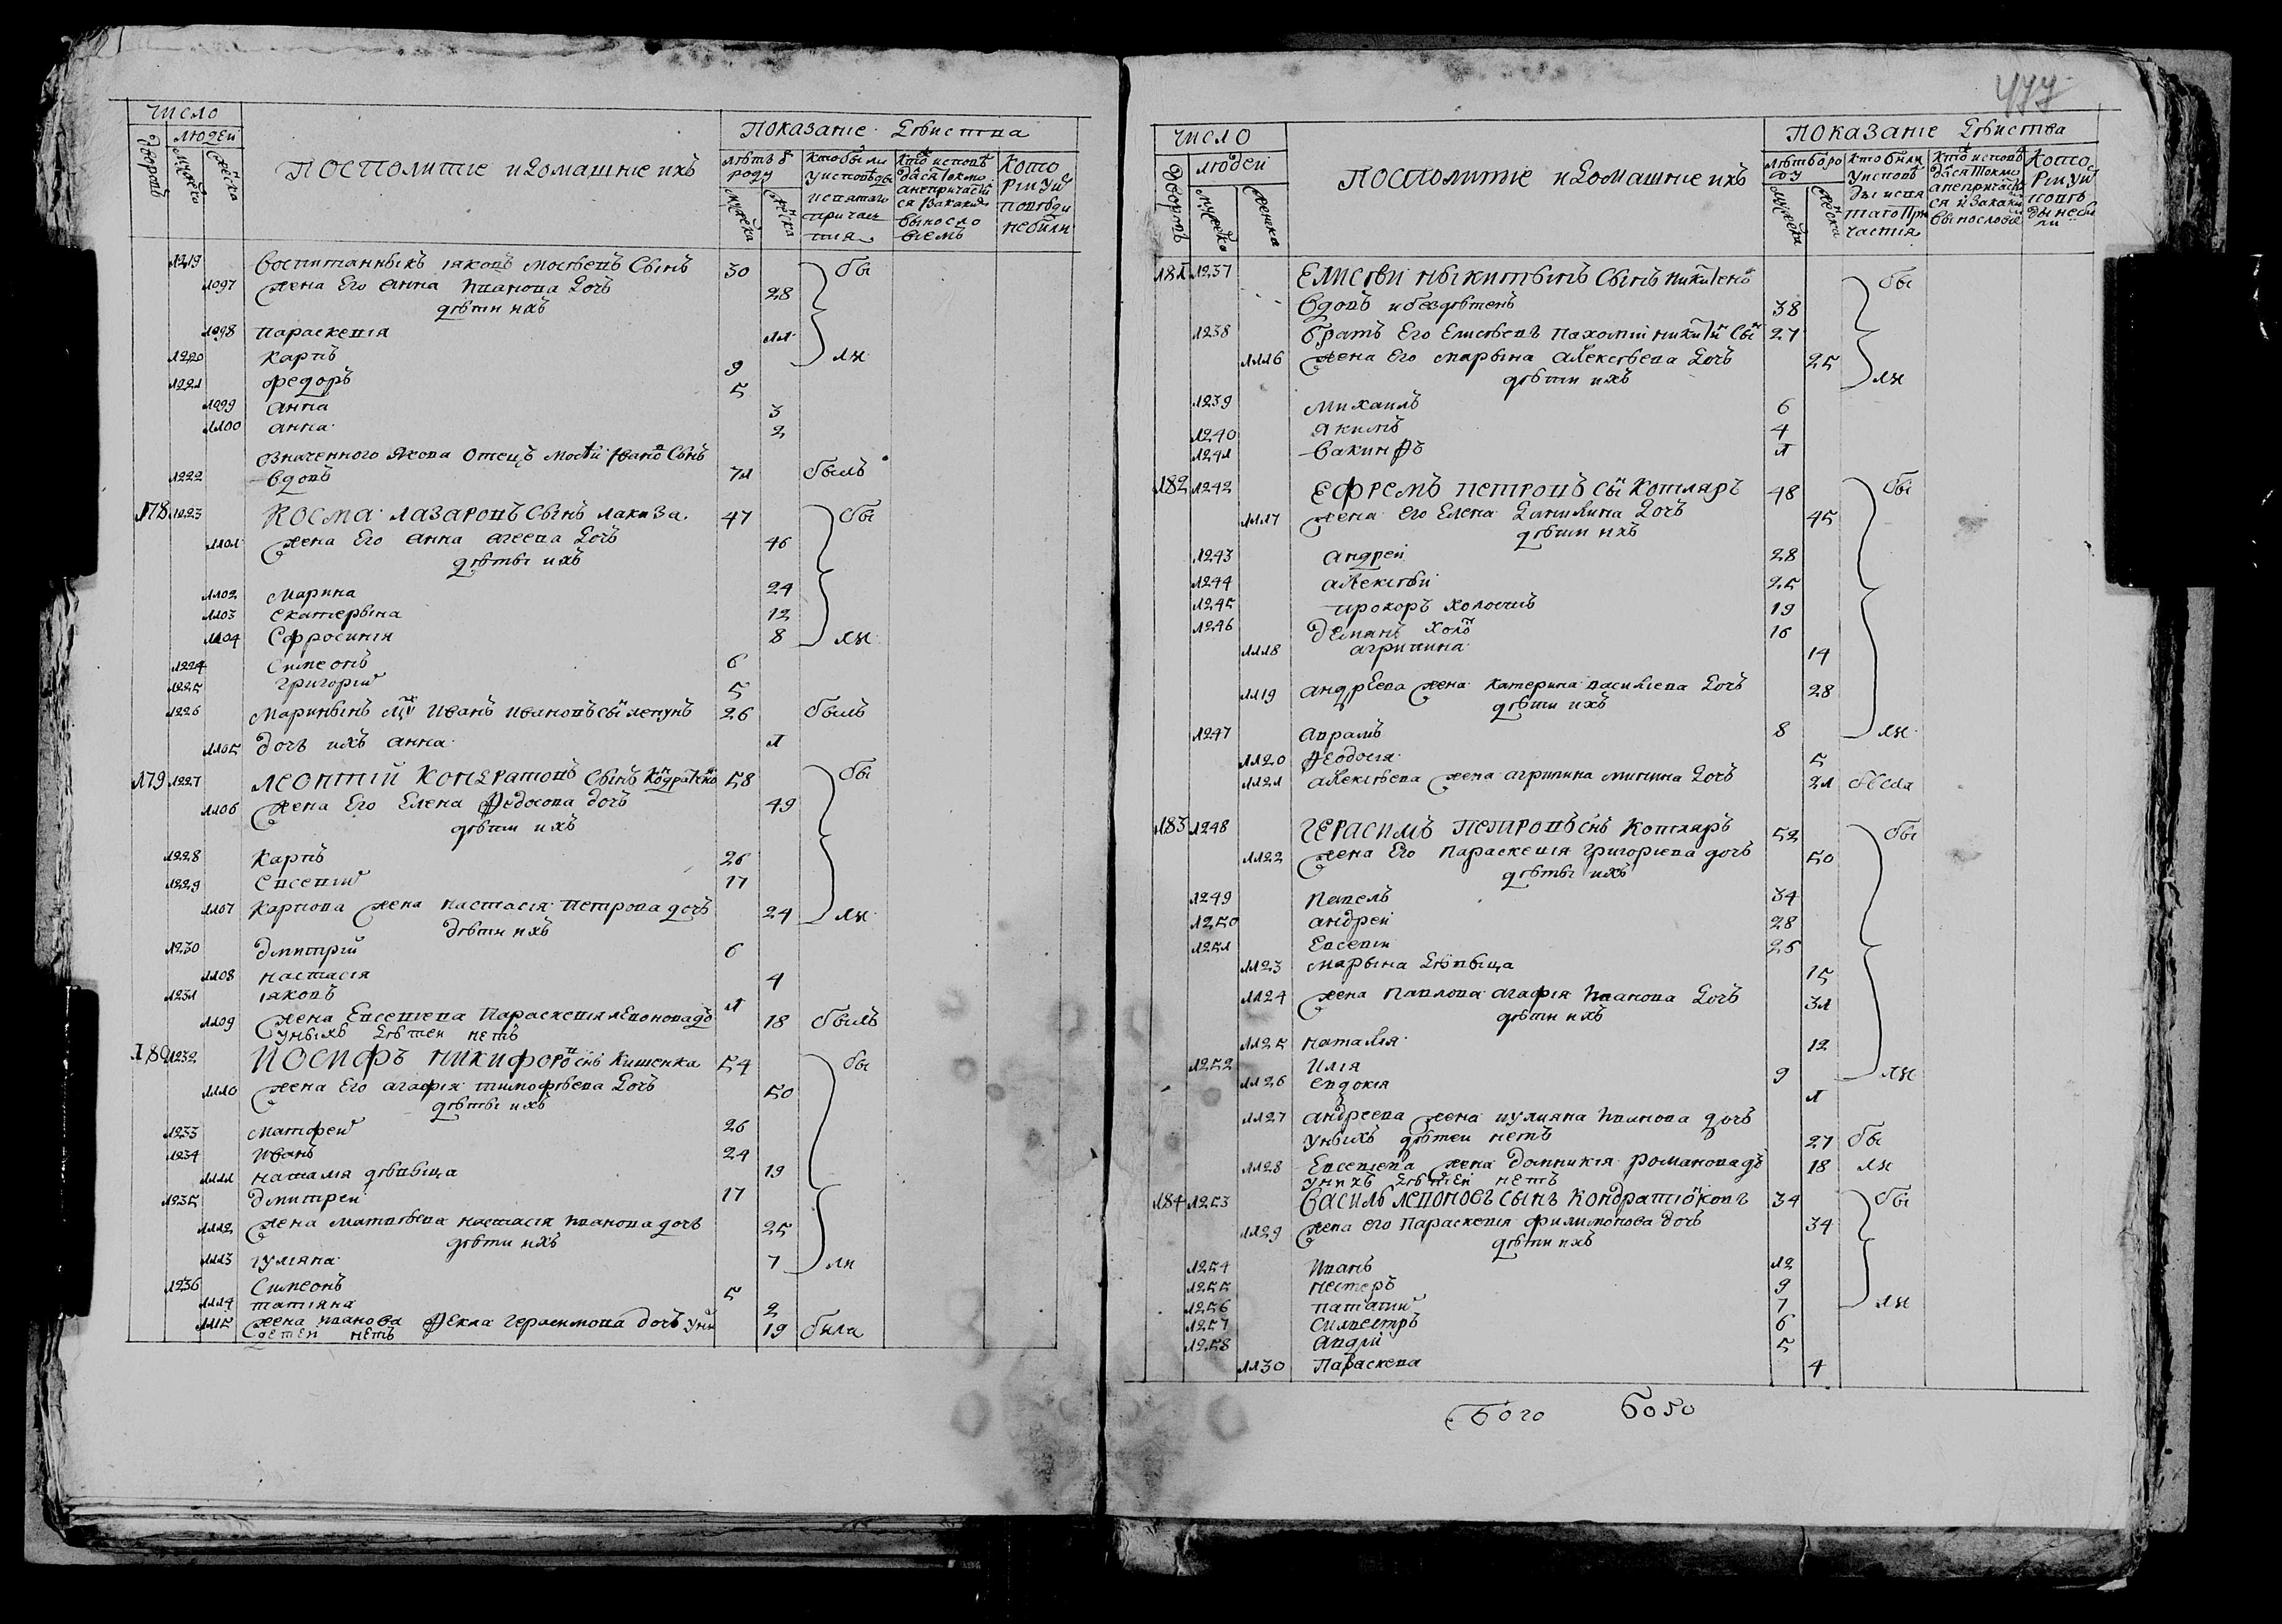 число
дворовъ
людей
мужеска
женска
посполитие и домашние ихъ
показание действа
летъ от роду
мужеска
женска
Кто были
у исповеди
и святаго
причас
тия
Кто исповѣ
дался токмо
а не причасти
ся и за каким
вынословиемъ
Кото
рии у и
поведи
не были
1219 воспитанныкъ иаковъ мосѣевъ сынъ 30 бы
1097 жена его анна иванова дочь 28
дѣти ихъ
1098 параскевия 11
1220 карпъ 9 ли
1221 федоръ 5
1099 анна 3
1100 анна 2
означенного якова отецъ мосѣй ивано сынъ
1222 вдовъ 71 былъ
178 1223 косма лазаровъ сынъ лакиза 47 бы
1101 жена его анна агеева дочь 46
дѣты ихъ
1102 марина 24
1103 екатерына 12
1104 ефросиния 8 ли
1224 симеонъ 6
1225 григорий 5
1226 маринынъ мужъ иванъ ивановъ сы 26 былъ
1105 дочь ихъ анна 1
179 1227 леонтий кондратовъ сынъ кондратенко 58 бы
1106 жена его елена федосова дочь 49
дѣти ихъ
1228 карпъ 26
1229 евсевий 17
1107 карпова жена настасия петрова дочь 24 ли
дѣти ихъ
1230 дмитрий 6
1108 настасия 4
1231 иаковъ 1
1109 жена евсевиева параскевия левонова дь 18 былъ
у ныхъ дѣтей нетъ
180 1232 иосифъ никифоровъ снъ кишенка 54 бы
1110 жена его агафия тимофѣева дочь 50
дѣты ихъ
1233 матфей 26
1234 иванъ 24
1111 наталия дѣвыца 19
1235 дмитрей 17
1112 жена матвѣева настасия иванова дочь 25
дѣти ихъ
1113 иулияна 7 ли
1236 симеонъ 5
1114 татияна 2
1115 жена иванова фекла герасимова дочь у них 19 была
детей нетъ
477
число
дворовъ
людей
мужеска
женска
посполитие и домашние ихъ
показание действа
летъ от ро
ду
мужеска
женска
кто были
у исповѣ
ды и свя
таго при
частия
кто исповѣ
дася токмо
а не причасти
ся и за каким
вынословие
кото
рии у и
повѣ
ды не бы
ли
181 1237 елисѣй никитынъ сынъ никитенко бы
вдовъ и бездѣтенъ 38
1238 братъ его елисѣевъ пахомий никитин сы 27
1116 жена его марына алексѣева дочь 25
дѣти ихъ ли
1239 михаилъ 6
1240 якимъ 4
1241 вакинфъ 1
182 1242 ефремъ петровъ сы котляръ 48 бы
1117 жена его елена данилина дочь 45
дѣти ихъ
1243 андрей 28
1244 алексѣй 25
1245 прохоръ холостъ 19
1246 демянъ холо 16
1118 агрипина 14
1119 андрѣева жена катерина василиева дочь 28
дѣти ихъ
1247 аврамъ 8 ли
1120 феодосия 5
1121 алексѣева жена агрипина минина дочь 21 была
183 1248 герасимъ петровъ снъ котляръ 52 бы
1122 жена его параскевия григориева дочь 50
дѣты ихъ
1249 павелъ 34
1250 андрей 28
1251 евсевий 25
1123 марына дѣвыца 15
1124 жена павлова агафия иванова дочь 31
дѣти ихъ
1125 наталия 12
1252 илия 9 ли
1126 евдокия 1
1127 андреева жена иулияна иванова дочь
у ныхъ дѣтей нетъ 27 бы
1128 евсевиева жена домникия романова дь 18 ли
у нихъ дѣтей нетъ
184 1253 василь левоновъ сынъ кондратюковъ 34 бы
1129 жена его параскевия филимонова дочь 34
дѣти ихъ
1254 иванъ 12
1255 нестеръ 9
1256 патапий 7 ли
1257 силвестръ 6
1258 авдий 5
1130 параскева 4